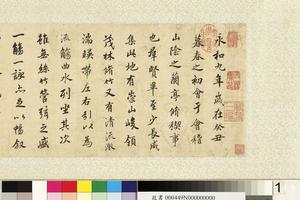 永和九年歲在癸丑
暮春之初會于會稽
山陰之蘭亭脩稧事
也羣賢畢至少長咸
集此地有崇山峻領
茂林脩竹又有清流激
湍暎帶左右引以為
流觴曲水列坐其次
雖無絲竹管弦之盛
一觴一詠亦足以暢敘
故書000449N00000000
1